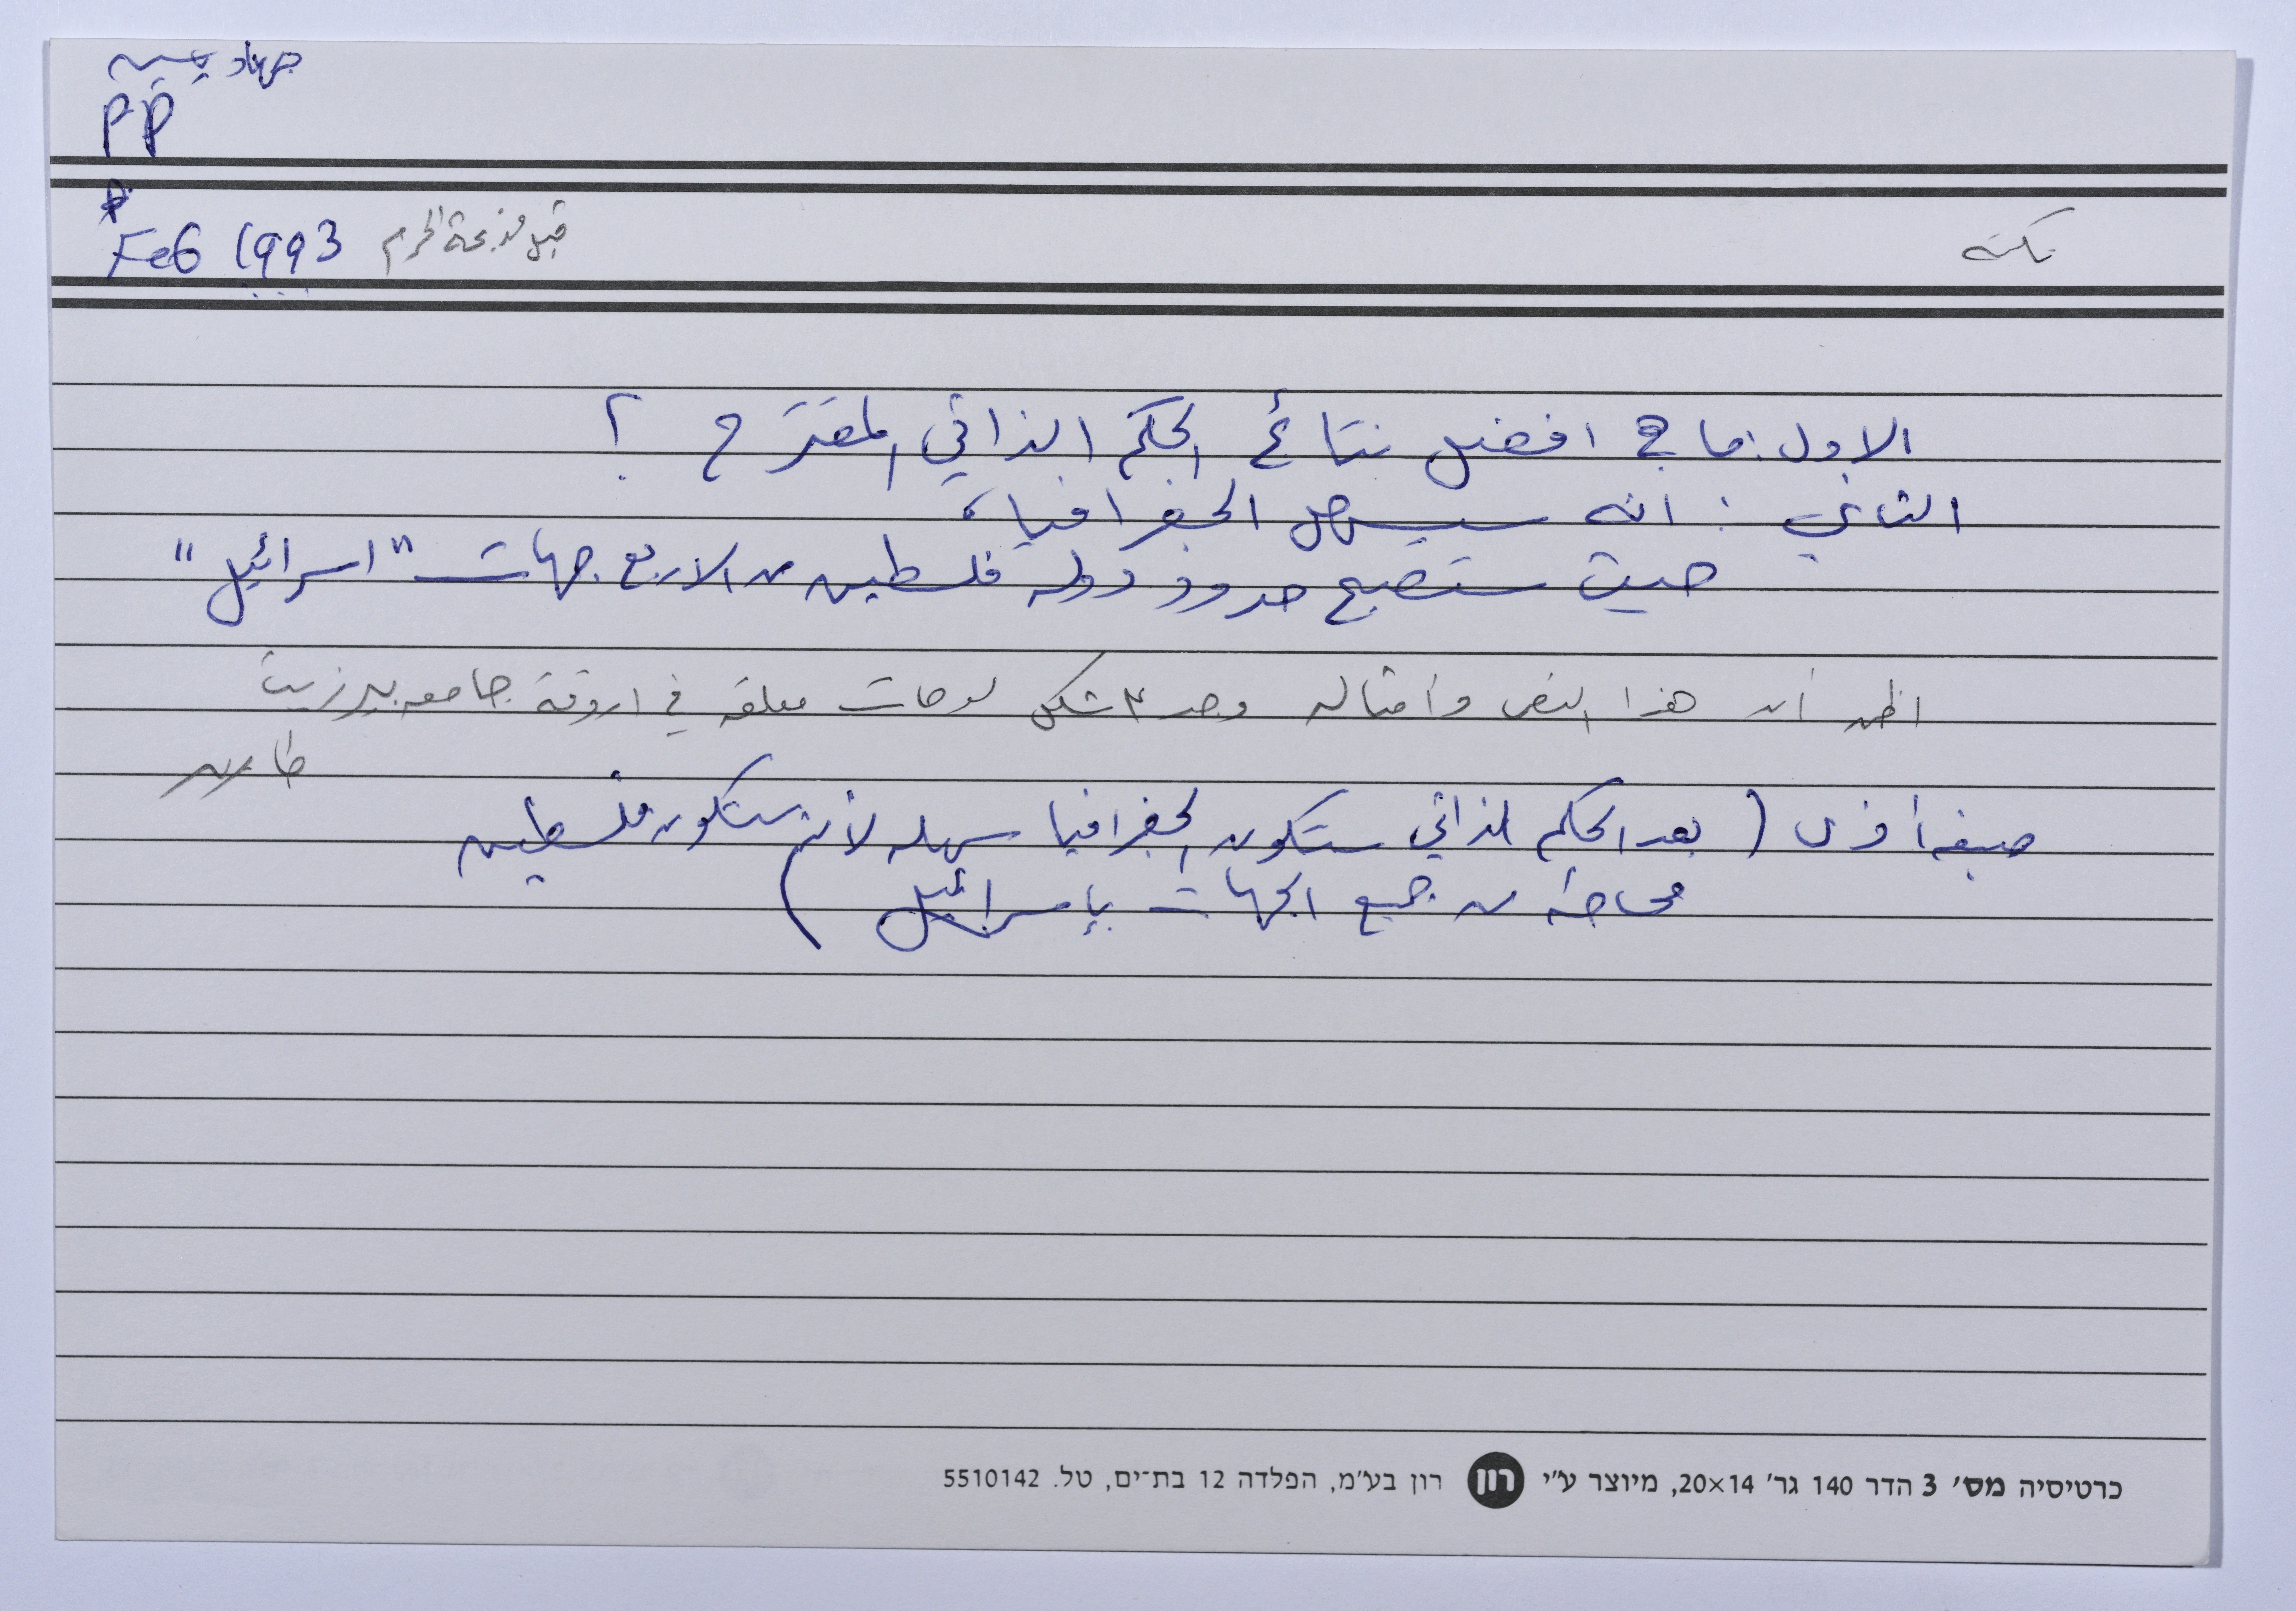 جهاد
PP
Feb 1993 قبل مذبحة الحرم
نكتة
الاول: ما هي افضل نتائج الحكم الذاتي المقترح ؟
الثاني : انه سيسهل الجغرافيا،
حيث ستصبح حدود دولة فلسطين من الاربع جهات "اسرائيل"
اظن أن هذا النص وأمثاله وجد شكل لوحات معلقه في اروقة جامعه بيرزيت
صيغه أخرى ( بعد الحكم الذاتي ستكون الجغرافيا سهله لأن ستكون فلسطين
محاطة من جميع الجهات بإسرائيل )
כרטיסיה מס׳ 3 הדר 140 גר׳ 20×14, מיוצר ע״י רון רון בע״מ, הפלדה 12 בת־ים, טל. 5510142